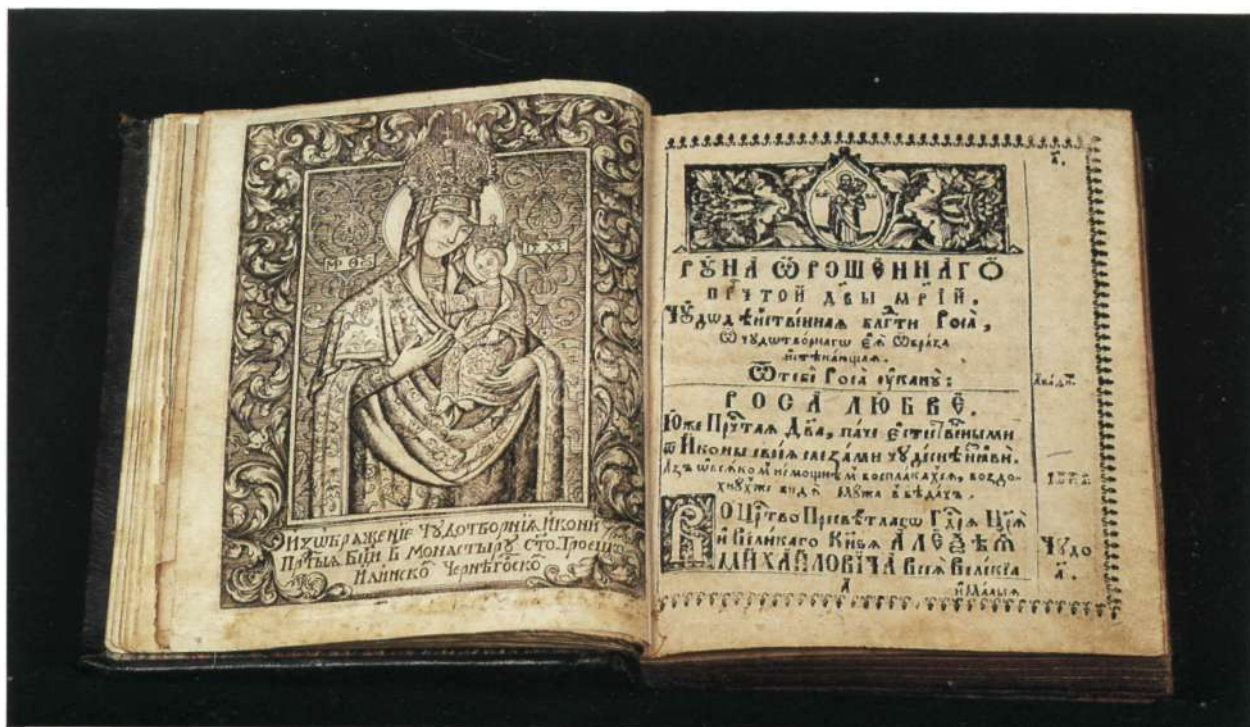 МР ΘУ
ІС ХС
Изѡбраженіе Чудотворнїѧ Икони
Пртыѧ Бци В монастыру сто Троецко
Илинско Чернѣгоско
РУНА ѠРОШЕННАГО
ПРЧТОЙ ДВЫ МРІЙ.
Чудѡдѣйственнаѧ блгти Роса,
Ѿ чудѡтворнагѡ Еѧ Ѡбраза
истекающаѧ.
Ѿ тебе Роса
РОСА ЛЮБВЕ.
Юже Пртаѧ Два, паче Естественными
ѿ Иконы своеѧ слезами чудеснѣ ꙗви.
Азъ ѡ всѧко немощнѣ восплакахсѧ, воздо-
хнухже видѧ мужа в бѣдахъ.
Во Црство Пресвѣтлагѡ Гдрѧ Црѧ
и Великаго Кнзѧ АЛЕѮѢѦ
МИХАЙЛОВИЧА Всеѧ Великіѧ
А
и Малыѧ
Чудо
а.